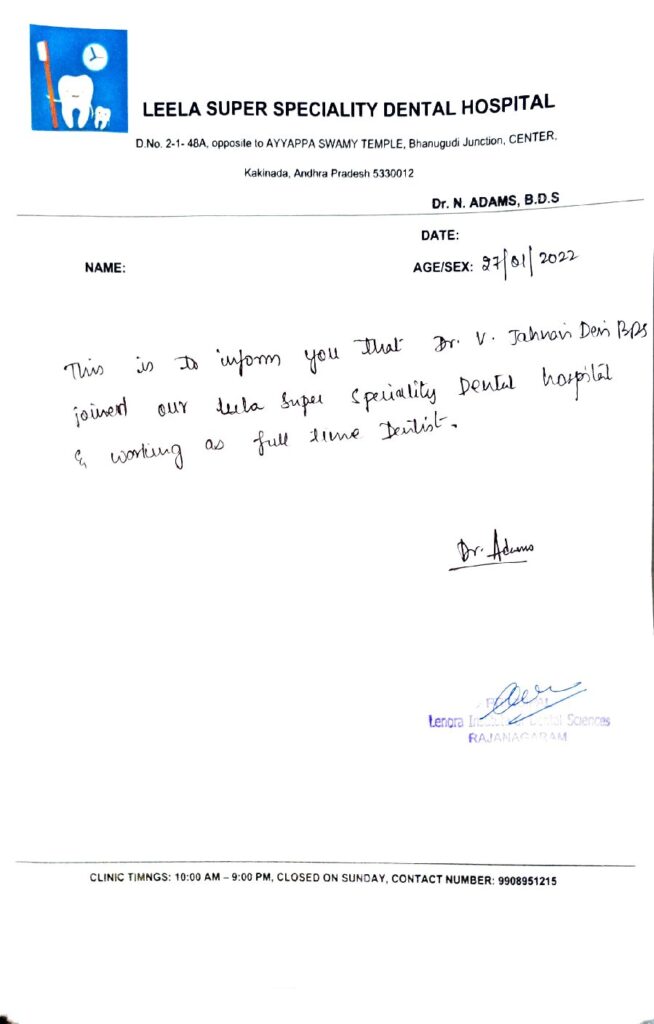 LEELA SUPER SPECIALITY DENTAL HOSPITAL
D.No. 2-1- 48A, opposite to AYYAPPA SWAMY TEMPLE, Bhanugudi Junction, CENTER,
Kakinada, Andhra Pradesh 5330012
Dr. N. ADAMS, B.D.S
DATE:
NAME:
AGE/SEX: 27/01/2022
This is to inform you that Dr. V. Jahnavi Devi BDS
joined our leela Super Speciality Dental hospital
& working as full time Dentist.
Dr. Adams
Lenora Dental Sciences
RAJANAGARAM
CLINIC TIMNGS: 10:00 AM – 9:00 PM, CLOSED ON SUNDAY, CONTACT NUMBER: 9908951215